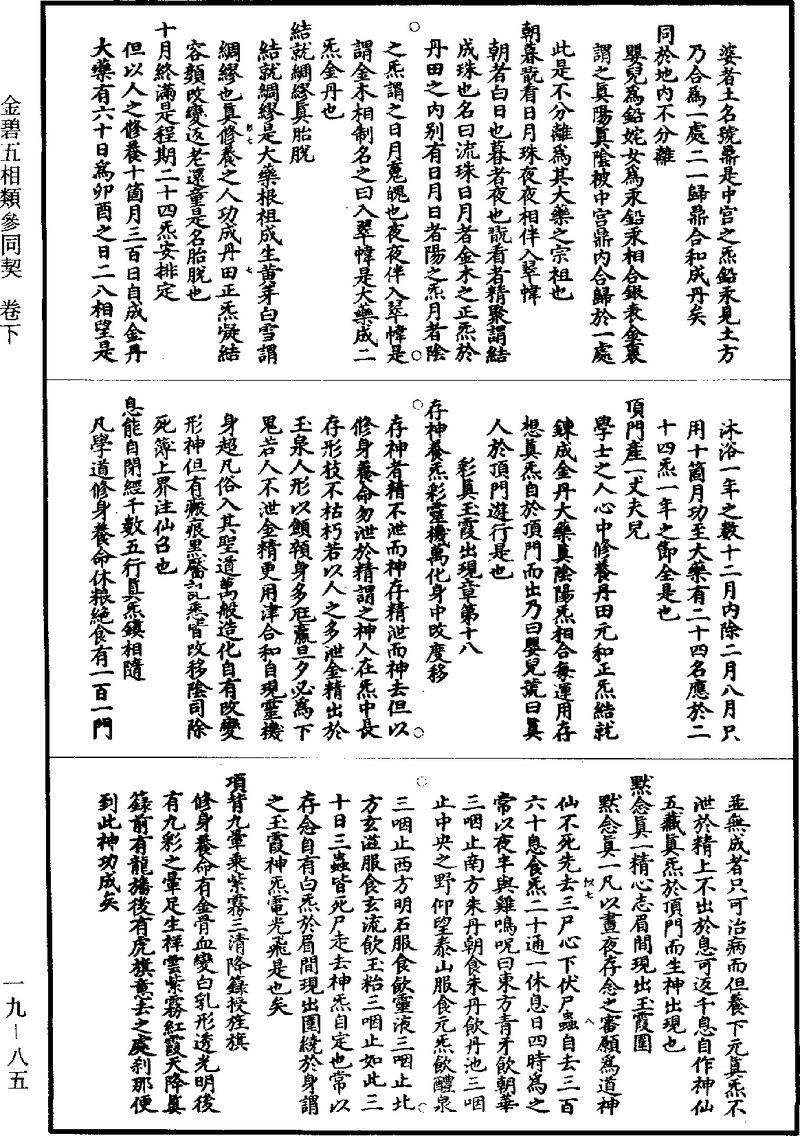 金碧五相類參同契　卷下
婆者土名號鼎是中宮之炁鉛汞見土方
乃合為一處二一歸鼎合和成丹矣
同於地內不分離
嬰兒為鉛姹女為汞鉛汞相合銀表金裏
謂之真陽真陰被中宮鼎內合歸於一處
此是不分離為其大藥之宗祖也
朝暮翫看日月珠夜夜相伴入翠幃
朝者白日也暮者夜也翫看者精聚謂結
成珠也名曰流珠日月者金木之正炁於
丹田之內別有日月日者陽之炁月者陰
之炁謂之日月䰟魄也夜夜伴入翠幃是
謂金木相制名之曰入翠幃是大藥成二
炁金丹也
結就綢繆真胎脫
結就綢繆是大藥根祖成生黃芽白雪謂
綢繆也真修養之人功成丹田正炁凝結
容顏改變返老還童是名胎脫也
十月終滿是程期二十四炁安排定
但以人之修養十箇月三百日自成金丹
大藥有六十日為卯酉之日二八相望是
沐浴一年之數十二月內除二月八月只
用十箇月功至大藥有二十四名應於二
十四炁一年之節全是也
頂門產一丈夫兒
學士之人心中修養丹田元和正炁結就
鍊成金丹大藥真陰陽炁相合每運用存
想真炁自於頂門而出乃曰嬰兒號曰真
人於頂門遊行是也
彩真玉霞出現章第十八
存神養炁彩靈機萬化身中改度移
存神者精不泄而神存精泄而神去但以
修身養命勿泄於精謂之神人在炁中長
存形枝不枯朽若以人之多泄金精出於
玉泉人形以顦顇身多尫羸旦夕必為下
鬼若人不泄金精更用津合和自現靈機
身超凡俗入其聖道萬般造化自有改變
形神但有瘢痕黑靨記悉皆改移陰司除
死簿上界注仙名也
息能自閉經千數五行真炁鎮相隨
凡學道修身養命休粮絕食有一百一門
並無成者只可治病而但養下元真炁不
泄於精上不出於息可返千息自作神仙
五藏真炁於頂門而生神出現也
默念真一精心志眉間現出玉霞圍
默念真一凡以晝夜存念之審願為道神
仙不死先去三尸心下伏尸蟲自去三百
六十息食炁二十通一休息日四時為之
常以夜半與雞鳴呪曰東方青牙飲朝華
三咽止南方朱丹朝食朱丹飲丹池三咽
止中央之野仰望泰山服食元炁飲醴泉
三咽止西方明石服食飲靈液三咽止北
方玄滋服食玄流飲玉粭三咽止如此三
十日三蟲皆死尸走去神炁自定也常以
存念自有白炁於眉間現出圍繞於身謂
之玉霞神炁電光飛是也矣
項背九暈乘紫霧三清降籙授旌旗
修身養命有金骨血變白乳形透光明後
有九彩之暈足生祥雲紫霧紅霞天降真
籙前有龍旛後有虎旗意去之處刹那便
到此神功成矣
一九－八五